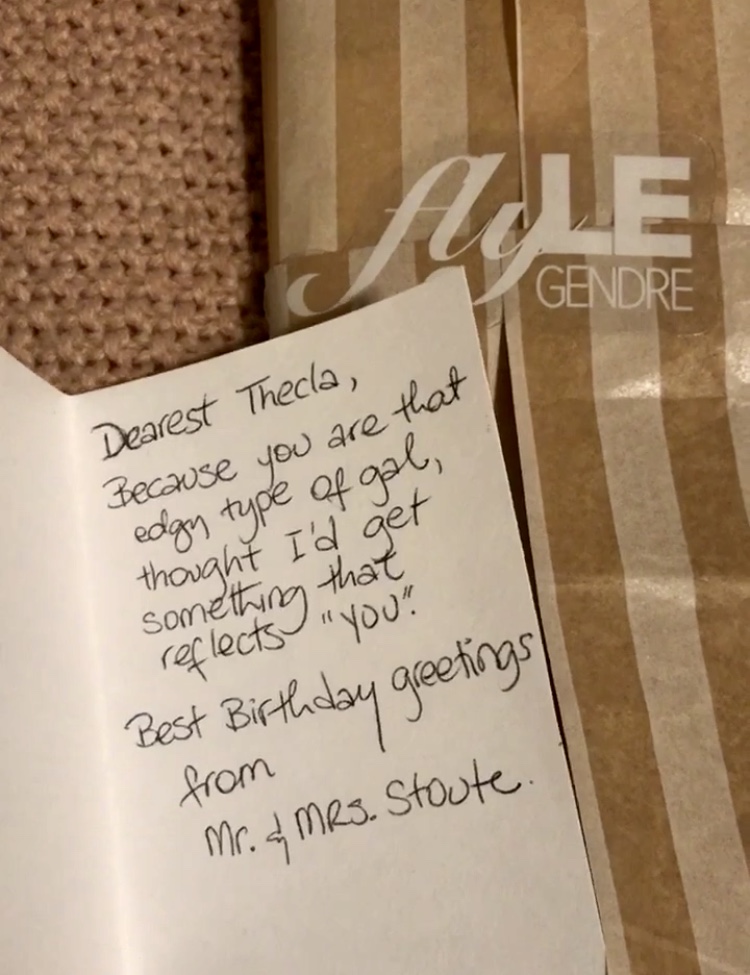 AyLE
GENDRE
Dearest Thecla,
Because you are that
edgy type of gal,
thought I'd get
something that
reflects "YOU".
Best Birthday greetings
from
Mr. & MRS. Stoute.